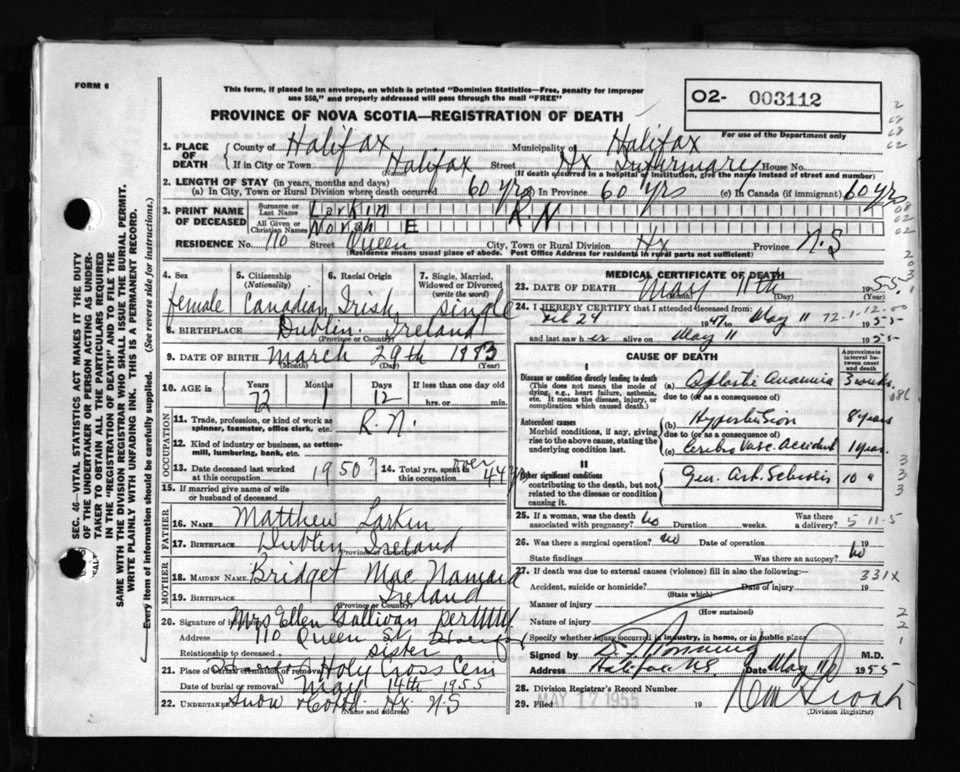 FORM 6
This form, if placed in an envelope, on which is printed "Dominion Statistics—Free, penalty for improper
use $50," and properly addressed will pass through the mail "FREE"
02- 003112
PROVINCE OF NOVA SCOTIA—REGISTRATION OF DEATH
For use of the Department only
SEC. 46—VITAL STATISTICS ACT MAKES IT THE DUTY
OF THE UNDERTAKER OR PERSON ACTING AS UNDER-
TAKER TO OBTAIN ALL THE PARTICULARS REQUIRED
IN THE "REGISTRATION OF DEATH" AND TO FILE THE
SAME WITH THE DIVISION REGISTRAR WHO SHALL ISSUE THE BURIAL PERMIT.
WRITE PLAINLY WITH UNFADING INK. THIS IS A PERMANENT RECORD.
Every item of information should be carefully supplied. (See reverse side for instructions.)
1. PLACE OF DEATH County of Halifax Municipality of Halifax
If in City or Town Halifax Street Hx Infirmary House No.
(Name) (If death occurred in a hospital or institution, give the name instead of street and number)
2. LENGTH OF STAY (in years, months and days)
(a) In City, Town or Rural Division where death occurred 60 yrs In Province 60 yrs (c) In Canada (if immigrant) 60 yrs
3. PRINT NAME OF DECEASED Surname or Last Name Larkin R.N
All Given or Christian Names Norah E
RESIDENCE No. 110 Street Queen City, Town or Rural Division Hx Province N.S
(Residence means usual place of abode. Post Office Address for residents in rural parts not sufficient)
4. Sex 5. Citizenship (Nationality) 6. Racial Origin 7. Single, Married, Widowed or Divorced (write the word)
female Canadian Irish single
8. BIRTHPLACE Dublin Ireland
(Province or Country)
9. DATE OF BIRTH March 29th 1883
(Month) (Day) (Year)
10. AGE in Years Months Days If less than one day old
72 1 12 hrs. or min.
OCCUPATION
11. Trade, profession, or kind of work as spinner, teamster, office clerk, etc. R.N.
12. Kind of industry or business, as cotton-mill, lumbering, bank, etc.
13. Date deceased last worked at this occupation 1950? 14. Total yrs. spent in this occupation over 44 yrs
15. If married give name of wife or husband of deceased
FATHER
16. NAME Matthew Larkin
17. BIRTHPLACE Dublin Ireland
(Province or Country)
MOTHER
18. MAIDEN NAME Bridget Mac Namara
19. BIRTHPLACE Ireland
(Province or Country)
20. Signature of informant Mrs Ellen Sullivan per
Address 110 Queen St, Halifax
Relationship to deceased sister
21. Place of burial, cremation or removal Holy Cross Cem
Date of burial or removal May 14th 1955
22. UNDERTAKER Snow & Co Ltd. Hx. N.S
(Name and address)
MEDICAL CERTIFICATE OF DEATH
23. DATE OF DEATH May 11th 1955
(Month) (Day) (Year)
24. I HEREBY CERTIFY that I attended deceased from:
Feb 24 1947 to May 11 1955
72-1-12-00
and last saw her alive on May 11 1955
CAUSE OF DEATH
Approximate interval between onset and death
I
Disease or condition directly leading to death (a) Aplastic Anaemia 3 weeks
(This does not mean the mode of dying, e.g., heart failure, asthenia, etc. It means the disease, injury, or complication which caused death.)
due to (or as a consequence of)
Antecedent causes (b) Hypertension 8 years
Morbid conditions, if any, giving rise to the above cause, stating the underlying condition last.
due to (or as a consequence of)
(c) Cerebro Vasc. Accident 1 year.
II
Other significant conditions Gen. Art. Sclerosis 10 "
contributing to the death, but not related to the disease or condition causing it.
25. If a woman, was the death associated with pregnancy? No Duration weeks. Was there a delivery?
5-11-5
26. Was there a surgical operation? No Date of operation 19
State findings Was there an autopsy? No
27. If death was due to external causes (violence) fill in also the following:
331X
Accident, suicide or homicide? Date of injury 19
(State which)
Manner of injury
(How sustained)
Nature of injury
Specify whether injury occurred in industry, in home, or in public place
Signed by M.D.
Address Halifax N.S. Date May 11 1955
28. Division Registrar's Record Number
29. Filed MAY 17 1955 19
(Division Registrar)